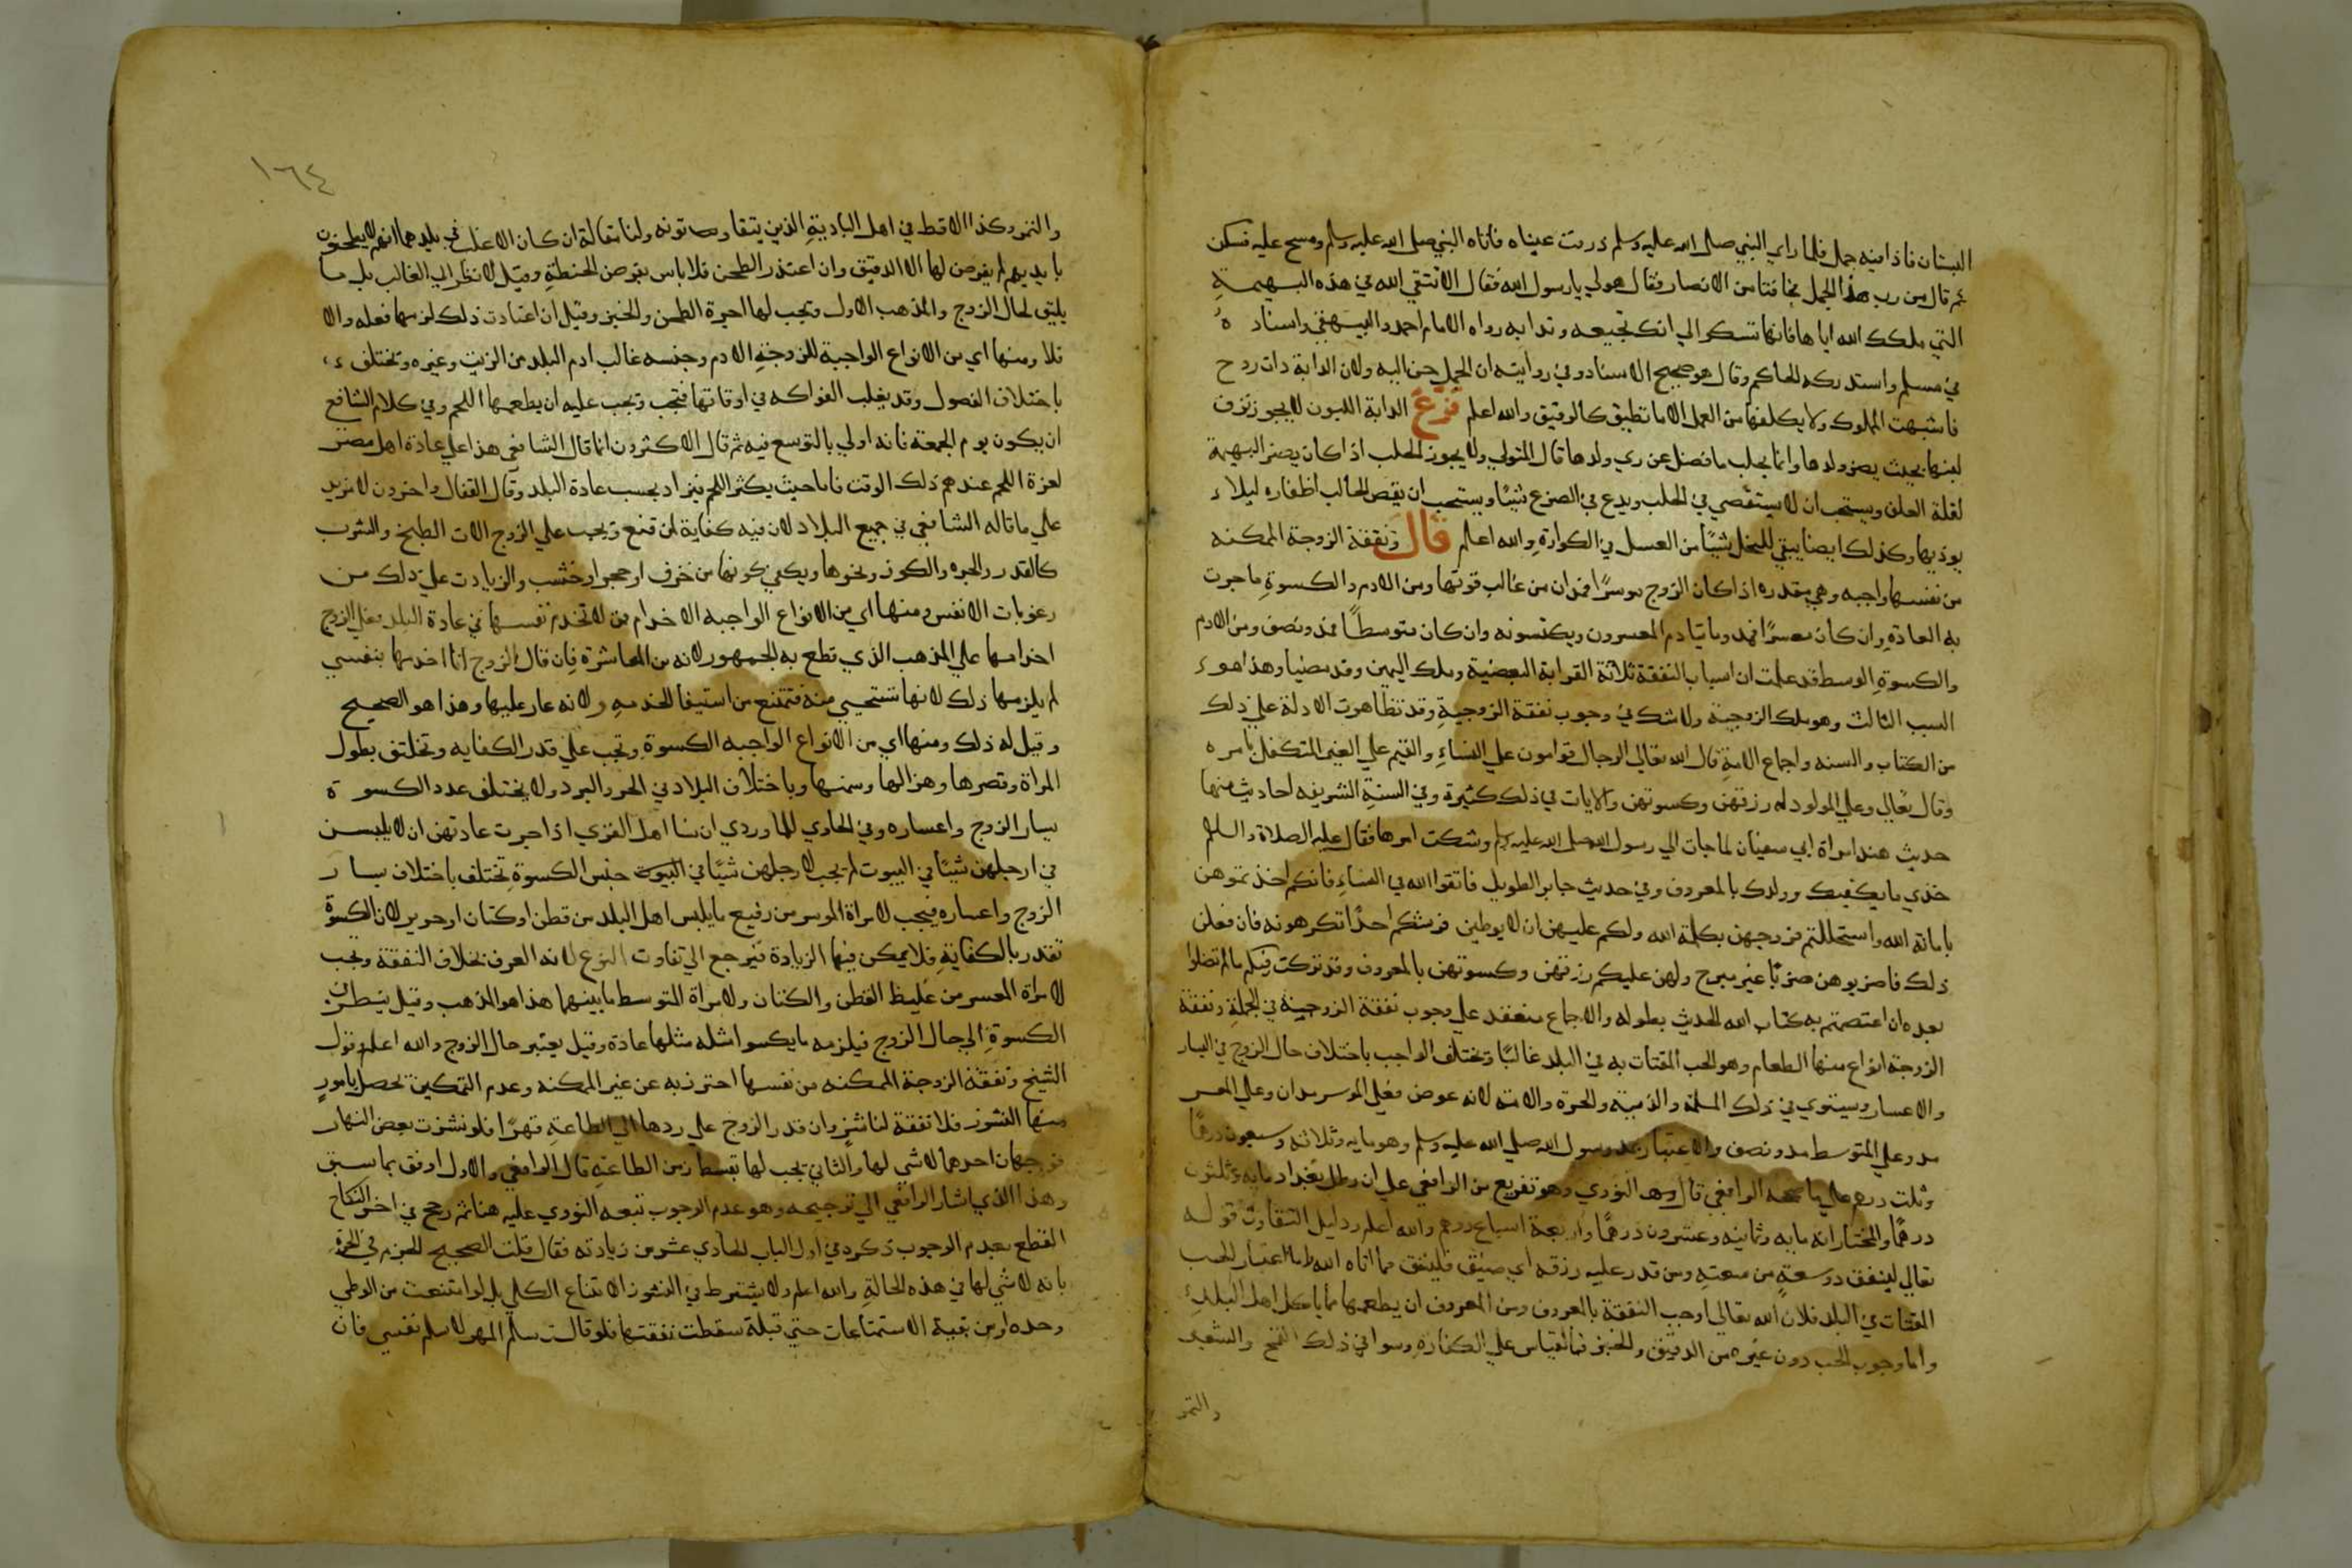 البستان فاذا فيه جمل فلما راى النبي صلى الله عليه وسلم ذرفت عيناه فاتاه النبي صلى الله عليه وسلم ومسح عليه فسكن
ثم قال من رب هذا الجمل فجا فتا من الانصار فقال هو لي يا رسول الله فقال الا تتقي الله في هذه البهيمة
التي ملكك الله اياها فانها تشكو الي انك تجيعه وتدابه رواه الامام احمد والبيهقي واسناده
في مسلم واستدركه الحاكم وقال هو صحيح الاسناد وفي روايته ان الجمل حن اليه ولان الدابة ذات روح
فاشبهت المملوك ولا يكلفها من العمل الا ما تطيق كالرقيق والله اعلم فرع الدابة اللبون لا يجوز نزف
لبنها بحيث يضر ولدها وانما يحلب ما فضل عن ري ولدها قال المتولي ولا يجوز الحلب اذا كان يضر البهيمة
لقلة العلف ويستحب ان لا يستقصي في الحلب ويدع في الضرع شيئا ويستحب ان يقص الحالب اظفاره ليلا
يوذيها وكذلك ايضا يبقي للنحل شيئا من العسل في الكوارة والله اعلم قال ونفقة الزوجة الممكنه
من نفسها واجبه وهي مقدره اذا كان الزوج موسرا فمدان من غالب قوتها ومن الادم والكسوة ما جرت
به العادة وان كان معسرا فمد وما يتادم المعسرون ويكتسونه وان كان متوسطا فمد ونصف ومن الادم
والكسوة الوسط قد علمت ان اسباب النفقة ثلاثة القرابة البعضية وملك اليمين وقد مضيا وهذا هو
السبب الثالث وهو ملك الزوجية ولا شك في وجوب نفقة الزوجية وقد تظاهرت الادلة علي ذلك
من الكتاب والسنه واجماع الامة قال الله تعالي الرجال قوامون علي النساء والقيم علي الغير المتكفل بامره
وقال تعالي وعلي المولود له رزقهن وكسوتهن والايات في ذلك كثيرة وفي السنة الشريفه احاديث منها
حديث هند امراة ابي سفيان لما جات الي رسول الله صلى الله عليه وسلم وشكت امرها فقال عليه الصلاة والسلم
خذي ما يكفيك وولدك بالمعروف وفي حديث جابر الطويل فاتقوا الله في النساء فانكم اخذتموهن
بامانة الله واستحللتم فروجهن بكلمة الله ولكم عليهن ان لا يوطين فرشكم احدا تكرهونه فان فعلن
ذلك فاضربوهن ضربا غير مبرح ولهن عليكم رزقهن وكسوتهن بالمعروف وقد تركت فيكم ما لم تضلوا
بعده ان اعتصمتم به كتاب الله الحديث بطوله والاجماع منعقد علي وجوب نفقة الزوجية في الجملة ونفقة
الزوجة انواع منها الطعام وهو الحب المقتات به في البلد غالبا وتختلف الواجب باختلاف حال الزوج في اليسار
والاعسار ويستوي في ذلك المسلمة والذمية والحرة والامة لانه عوض فعلي الموسر مدان وعلي المعسر
مد وعلي المتوسط مد ونصف والاعتبار بمد رسول الله صلي الله عليه وسلم وهو مايه وثلاثه وسبعون درهما
وثلث درهم علي ما صححه الرافعي قال النووي وهو تفريع من الرافعي علي ان رطل بغداد مايه وثلثون
درهما والمختار انه مايه وثمانيه وعشرون درهما واربعة اسباع درهم والله اعلم ودليل التفاوت قوله
تعالي لينفق ذو سعة من سعته ومن قدر عليه رزقه اي ضيق فلينفق مما اتاه الله واما اعتبار الحب
المقتات في البلد فلان الله تعالي اوجب النفقة بالمعروف ومن المعروف ان يطعمها مما ياكل اهل البلد
واما وجوب الحب دون غيره من الدقيق والخبز فبالقياس علي الكفارة وسوا في ذلك القمح والشعير
والتمر
١٦٤
والتمر وكذا الاقط في اهل البادية الذين يقتاتونه ولنا مقالة ان كان الاغلب في بلدهما انهم لا يطحنون
بايديهم لم يفرض لها الا الدقيق وان اعتذر الطحن فلا باس بفرض الحنطة وقيل لا نظر الي الغالب بل ما
يليق بحال الزوج والمذهب الاول وتجب لها اجرة الطحن والخبز وقيل ان اعتادت ذلك لزمها فعله والا
فلا ومنها اي من الانواع الواجبة للزوجة الادم وجنسه غالب ادم البلد من الزيت وغيره وتختلف
باختلاف الفصول وقد يغلب الفواكه في اوقاتها فتجب وتجب عليه ان يطعمها اللحم وفي كلام الشافعي
ان يكون يوم الجمعة فانه اولي بالتوسع فيه ثم قال الاكثرون انما قال الشافعي هذا علي عادة اهل مصر
لعزة اللحم عندهم ذلك الوقت فاما حيث يكثر اللحم فيزاد بحسب عادة البلد وقال القفال واخرون لا مزيد
علي ما قاله الشافعي في جميع البلاد لان فيه كفاية لمن قنع وتجب علي الزوج الات الطبخ والشرب
كالقدر والجره والكوز ونحوها ويكفي كونها من خزف او حجر او خشب والزيادت علي ذلك من
رعونات الانفس ومنها اي من الانواع الواجبه الاخدام فمن لا تخدم نفسها في عادة البلد فعلي الزوج
اخدامها علي المذهب الذي قطع به الجمهور لانه من المعاشرة فان قال الزوج انا اخدمها بنفسي
لم يلزمها ذلك لانها تستحيي منه فتمتنع من استيفا الخدمه ولانه عار عليها وهذا هو الصحيح
وقيل له ذلك ومنها اي من الانواع الواجبه الكسوة وتجب علي قدر الكفايه وتختلف بطول
المراة وقصرها وهزالها وسمنها وباختلاف البلاد في الحر والبرد ولا يختلف عدد الكسوة
بيسار الزوج واعساره وفي الحاوي للماوردي ان نسا اهل القري اذا جرت عادتهن ان لا يلبسن
في ارجلهن شيئا في البيوت لم يجب لارجلهن شيئا في البيوت جنس الكسوة تختلف باختلاف يسار
الزوج واعساره فيجب لامراة الموسر من رفيع ما يلبس اهل البلد من قطن او كتان او حرير لان الكسوة
تقدر بالكفاية فلا يمكن فيها الزيادة فيرجع الي تفاوت النوع لانه العرف بخلاف النفقة وتجب
لامراة المعسر من غليظ القطن والكتان ولامراة المتوسط ما بينهما هذا هو المذهب وقيل ينظر في
الكسوة الي حال الزوج فيلزمه ما يكسوا مثله مثلها عادة وقيل يعتبر حال الزوج والله اعلم وقول
الشيخ ونفقة الزوجة الممكنه من نفسها احترز به عن غير الممكنه وعدم التمكين تحصل بامور
منها النشوز فلا نفقة لناشز وان قدر الزوج علي ردها الي الطاعة قهرا فلو نشزت بعض النهار
فوجهان احدهما لا شي لها والثاني يجب لها بقسط زمن الطاعة قال الرافعي والاول اوفق بما سبق
وهذا الذي اشار الرافعي الي ترجيحه وهو عدم الوجوب تبعه النووي عليه هنا ثم رجح في اخر النكاح
القطع بعدم الوجوب ذكره في اول الباب الحادي عشر من زيادته فقال قلت الصحيح الجزم في الحرة
بانه لا شي لها في هذه الحالة والله اعلم ولا يشترط في النشوز الامتناع الكلي بل لو امتنعت من الوطي
وحده او من بقية الاستمتاعات حتي قبلة سقطت نفقتها فلو قالت سلم المهر لاسلم نفسي فان